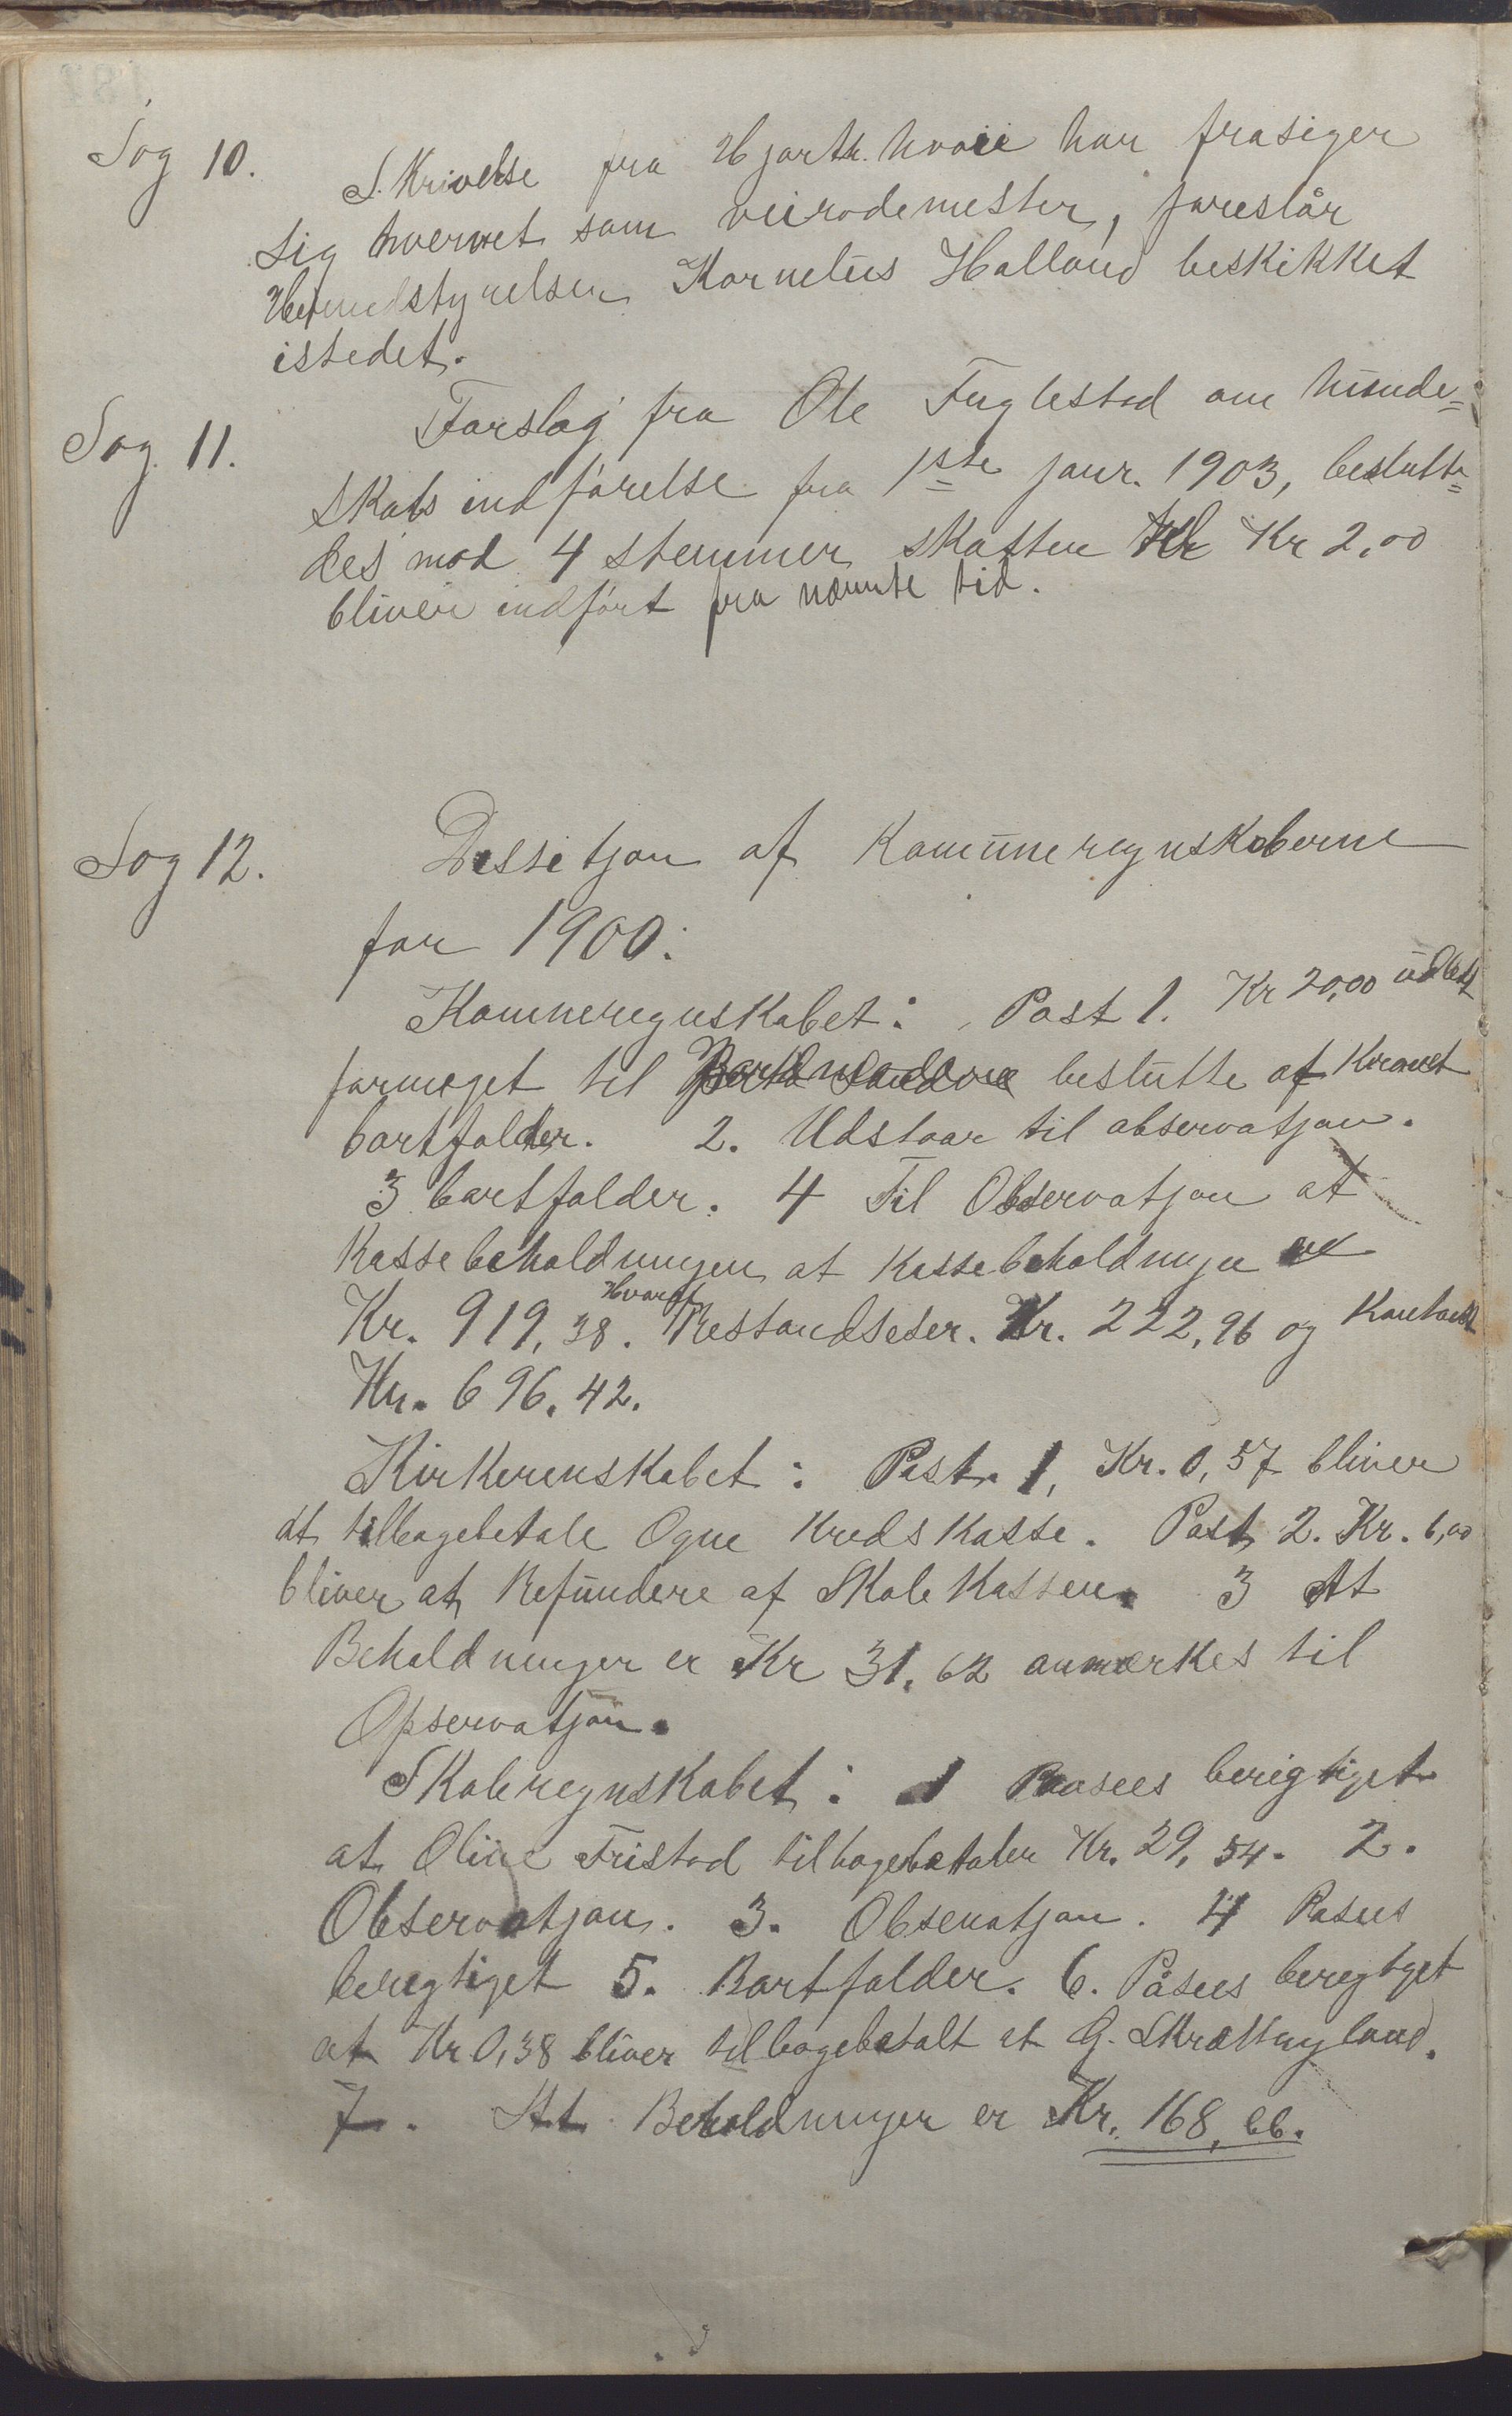 Sag 10. Skrivelse fra Hjorth. hvori han frasiger
sig hvervet som veirodemester, foreslår
Heredstyrelsen Kornelius Holland beskikket
istedet.
Sag 11. Forslag fra Ole Fuglestad om hunde=
skats indførelse fra 1ste janr. 1903, beslutte=
des mod 4 stemmer skatten Kr 2,00
bliver indført fra nævnte tid.
Sag 12. Dessitjon af Komuneregnskoberne
for 1900.
Komneregnskabet: Post 1. Kr 20,00 udbet
formeget til beslutte af Kravet
bortfalder. 2. Udstaar til observatjon.
3 bortfalder. 4 Til Observatjon at
Kassebeholdningen at Kassebeholdningen
Kr. 919,38. Hvoraf Restandseser. Kr. 222,96 og Kontant
Kr. 696.42.
Kirkerenskabet: Post. 1, Kr. 0,57 bliver
at tilbagebetale Ogne Kredskasse. Post 2. Kr. 6,00
bliver at Refundere af Skolekassen. 3 At
Beholdninger er Kr 31,62 anmærkes til
Opservatjon.
Skoleregnskabet: 1 Paasees berigtiget
at Oline Tristad tilbagebetaler Kr. 29,54. 2.
Observatjon. 3. Obsevatjon. 4 Pasees
berigtiget 5. Bortfalder. 6. Påsees berigtyet
at Kr 0,38 bliver tilbagebetalt at G. Skrettingland.
7. At Beholdninger er Kr. 168,66.